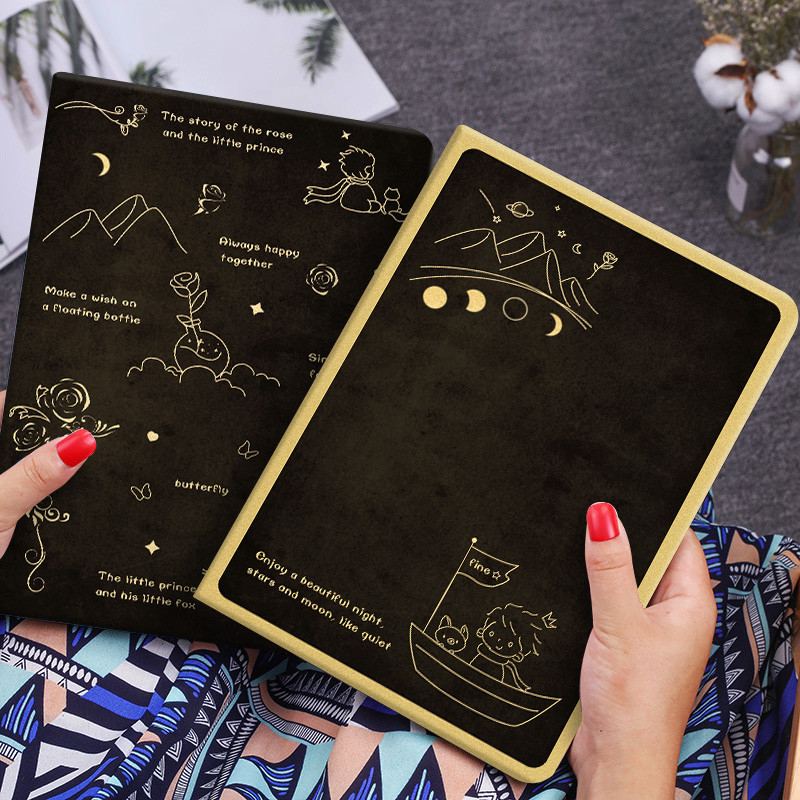 The story of the rose
and the little prince
Always happy
together
Make a wish on
a floating bottle
butterfly
The little prince
and his little fox
fine
Enjoy a beautiful night,
stars and moon, like quiet